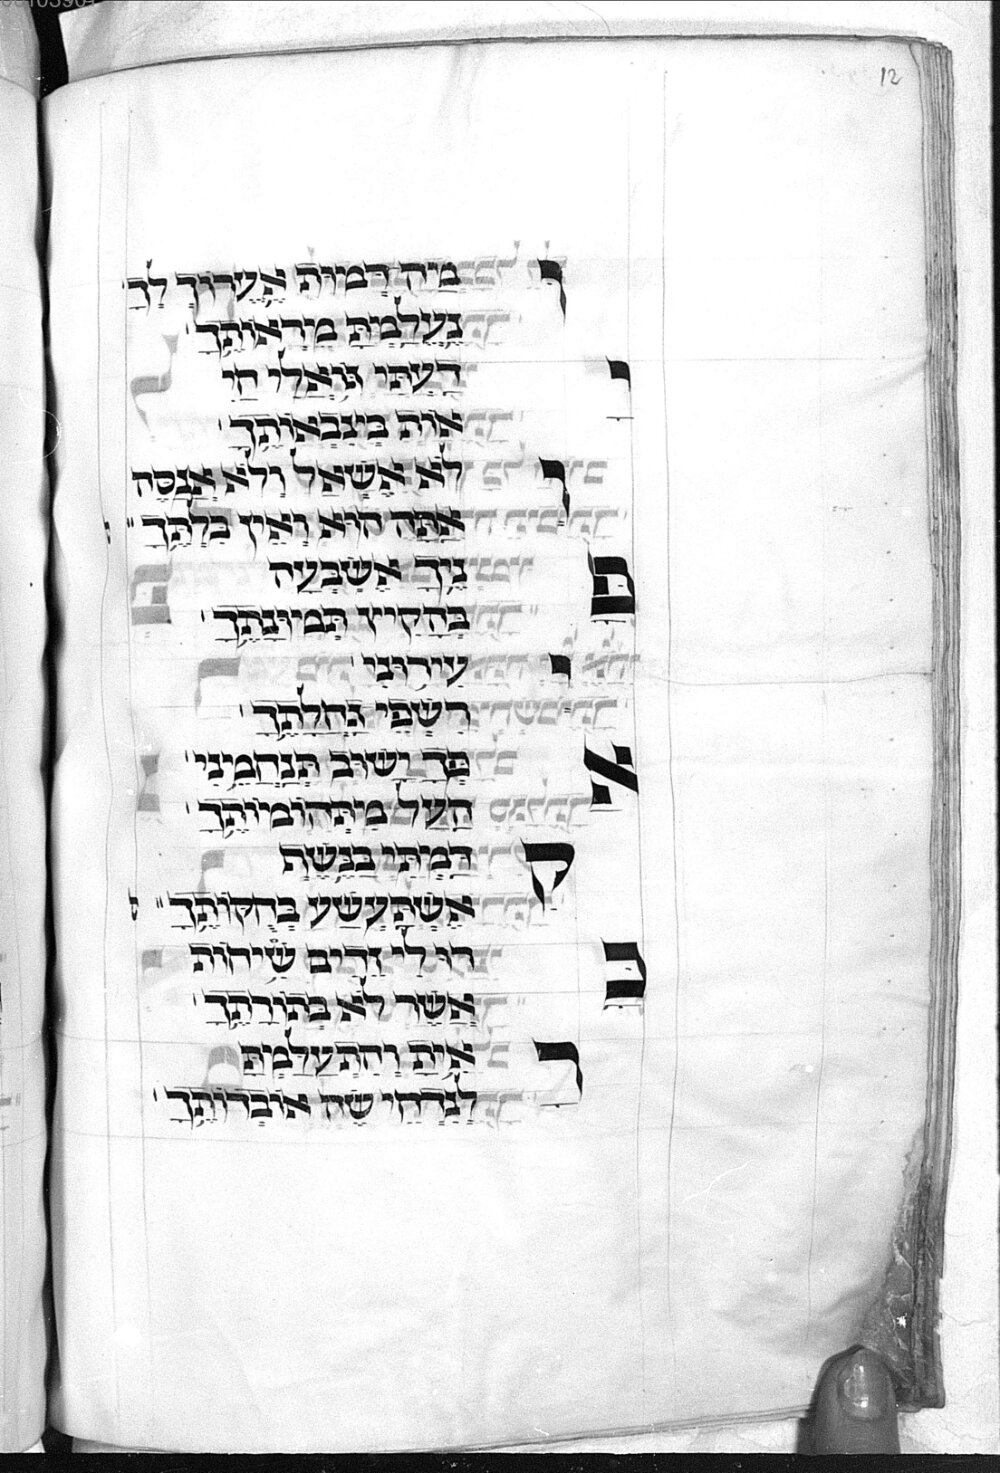 12
ו מַיה דְמיוּת אֶעֲרוֹך לָךְ
נֶעֱלַמְיתָּ מֵירְאוֹתֶךָ'
י דַעְתִּי גּוֹאֲלִי חַי
אוֹת בִּיצְבְאוֹתֶךָ'
ו לֹא אֶשְׁאַל וְלֹא אֲנַסֶּה
אַתָּה הוּא וְאֵין בִּלְתֶּךָ"
מ נֶיךָ אֶשְׂבְּעָה
בְּהָקִיץ תְּמוּנָתֶךָ'
י עִירוּנִי'
רִשְׁפֵי גַּחַלְתֶּךָ'
א פְּךָ יָשׁוּב תְּנַחֲמֵינִי'
הַעַל מִתְּהוֹמוֹתֶךָ'
ק דַּמְתִּי בַנֶּשֶׁף
אֶשְׁתַּעֲשַׁע בְּחֻקּוֹתֶךָ"
כ רוּ לִי זֵדִים שִׂיחוֹת
אֲשֶׁר לֹא כְתוֹרָתֶךָ'
ר אִיתָ וְהִתְעַלַּמְתָּ
לְנִדְּחֵי שֶׂה אוֹבְדוֹתֶךָ'